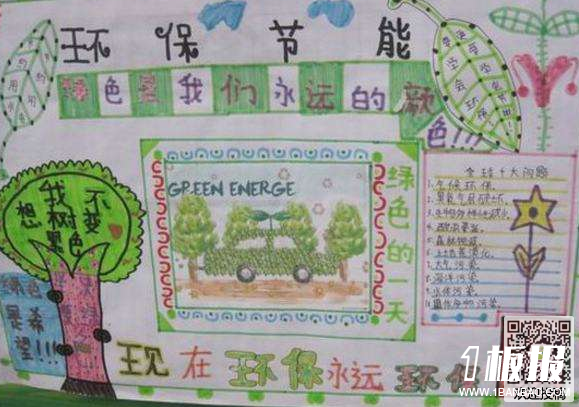 环保节能
绿色是我们永远的颜
色!!!
我不变
想树色
果
GREEN ENERGE
绿色的一天
全球十大问题
1.气候环保
2.臭氧气层破坏
3.生物多样性减少
4.酸雨蔓延
5.森林锐减
6.土地荒漠化
7.大气污染
8.海洋污染
9.水体污染
10.固体废物污染
绿色
是希
望!!!
现在环保永远环保
1板报
WWW.1BANBAO.COM